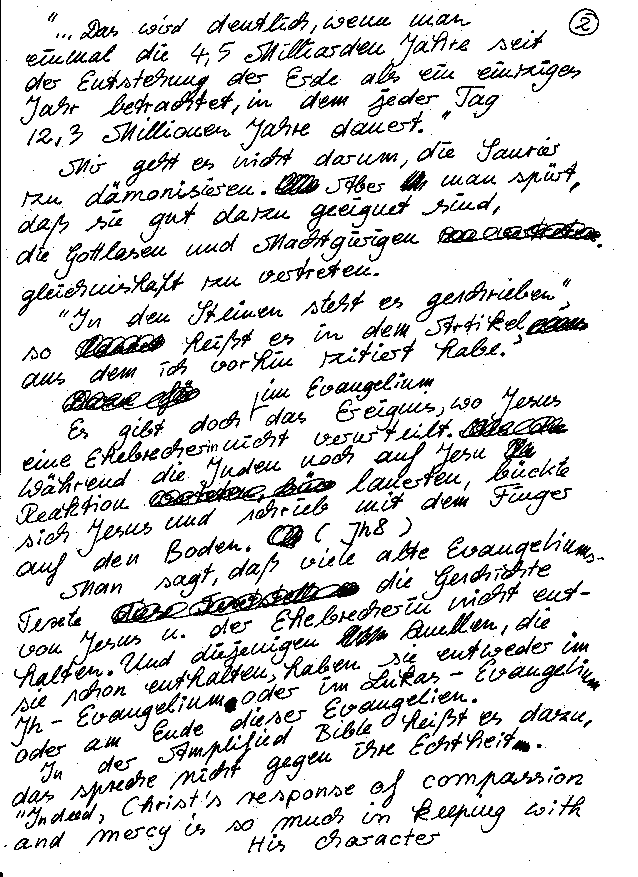 2
"... Das wird deutlich, wenn man
einmal die 4,5 Milliarden Jahre seit
der Entstehung der Erde als ein einziges
Jahr betrachtet, in dem jeder Tag
12,3 Millionen Jahre dauert."
Mir geht es nicht darum, die Saurier
zu dämonisieren. Aber man spürt,
daß sie gut dazu geeignet sind,
die Gottlosen und Machtgierigen
gleichnishaft zu vertreten.
"In den Steinen steht es geschrieben",
so heißt es in dem Artikel,
aus dem ich vorhin zitiert habe.
im Evangelium
Es gibt doch das Ereignis, wo Jesus
eine Ehebrecherin nicht verurteilt.
Während die Juden noch auf Jesu
Reaktion lauerten, bückte
sich Jesus und schrieb mit dem Finger
auf den Boden. (Jh8)
Man sagt, daß viele alte Evangeliums-
Texte die Geschichte
von Jesus u. der Ehebrecherin nicht ent-
halten. Und diejenigen Quellen, die
sie schon enthalten, haben sie entweder im
Jh-Evangelium oder im Lukas-Evangelium
oder am Ende dieser Evangelien.
In der Amplified Bible heißt es dazu,
das spreche nicht gegen ihre Echtheit.
"Indeed, Christ's response of compassion
and mercy is so much in keeping with
His character